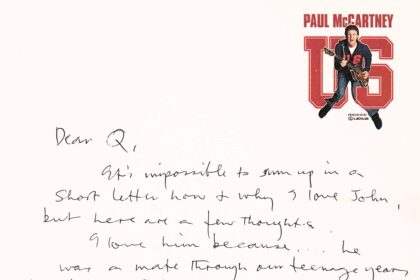 PAUL McCARTNEY
US
Dear Q,
It's impossible to sum up in a
short letter how & why I love John,
but here are a few thoughts.
I love him because.... he
was a mate through our teenage years,